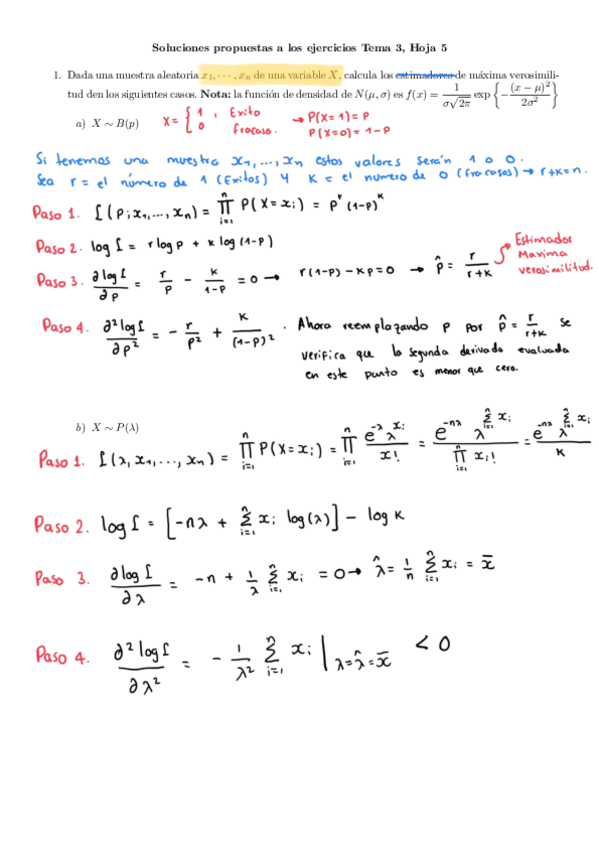 Soluciones propuestas a los ejercicios Tema 3, Hoja 5
1. Dada una muestra aleatoria x₁, ⋯ , xₙ de una variable X, calcula los estimadores de máxima verosimili-
tud den los siguientes casos. Nota: la función de densidad de N(μ, σ) es f(x) = 1/(σ√2π) exp {−(x − μ)²/2σ²}
a) X ∼ B(p) X = { 1 , Exito → P(X=1) = P
0 Fracaso. P(X=0) = 1-P
Si tenemos una muestra x₁, ..., xₙ estos valores serán 1 o 0.
Sea r = el número de 1 (Exitos) y K = el numero de 0 (fracasos) → r+K = n.
Paso 1. L(p; x₁, ..., xₙ) = ∏ᵢ₌₁ⁿ P(X = xᵢ) = pʳ (1-p)ᴷ
Paso 2. log L = r log p + K log (1-p)
Paso 3. ∂ log L / ∂p = r/p − K/(1-p) = 0 → r(1-p) − Kp = 0 → p̂ = r/(r+K) Estimador
Maxima
verosimilitud.
Paso 4. ∂² log L / ∂p² = − r/p² + K/(1-p)² . Ahora reemplazando p por p̂ = r/(r+K) se
verifica que la segunda derivada evaluada
en este punto es menor que cero.
b) X ∼ P(λ)
Paso 1. L(λ, x₁, ..., xₙ) = ∏ᵢ₌₁ⁿ P(X = xᵢ) = ∏ᵢ₌₁ⁿ e^(-λ) λ^(xᵢ) / x! = e^(-nλ) λ^(∑ᵢ₌₁ⁿ xᵢ) / ∏ᵢ₌₁ⁿ xᵢ! = e^(-nλ) λ^(∑ᵢ₌₁ⁿ xᵢ) / K
Paso 2. log L = [-nλ + ∑ᵢ₌₁ⁿ xᵢ log(λ)] − log K
Paso 3. ∂ log L / ∂λ = -n + 1/λ ∑ᵢ₌₁ⁿ xᵢ = 0 → λ̂ = 1/n ∑ᵢ₌₁ⁿ xᵢ = x̄
Paso 4. ∂² log L / ∂λ² = − 1/λ² ∑ᵢ₌₁ⁿ xᵢ |λ=λ̂=x̄ < 0